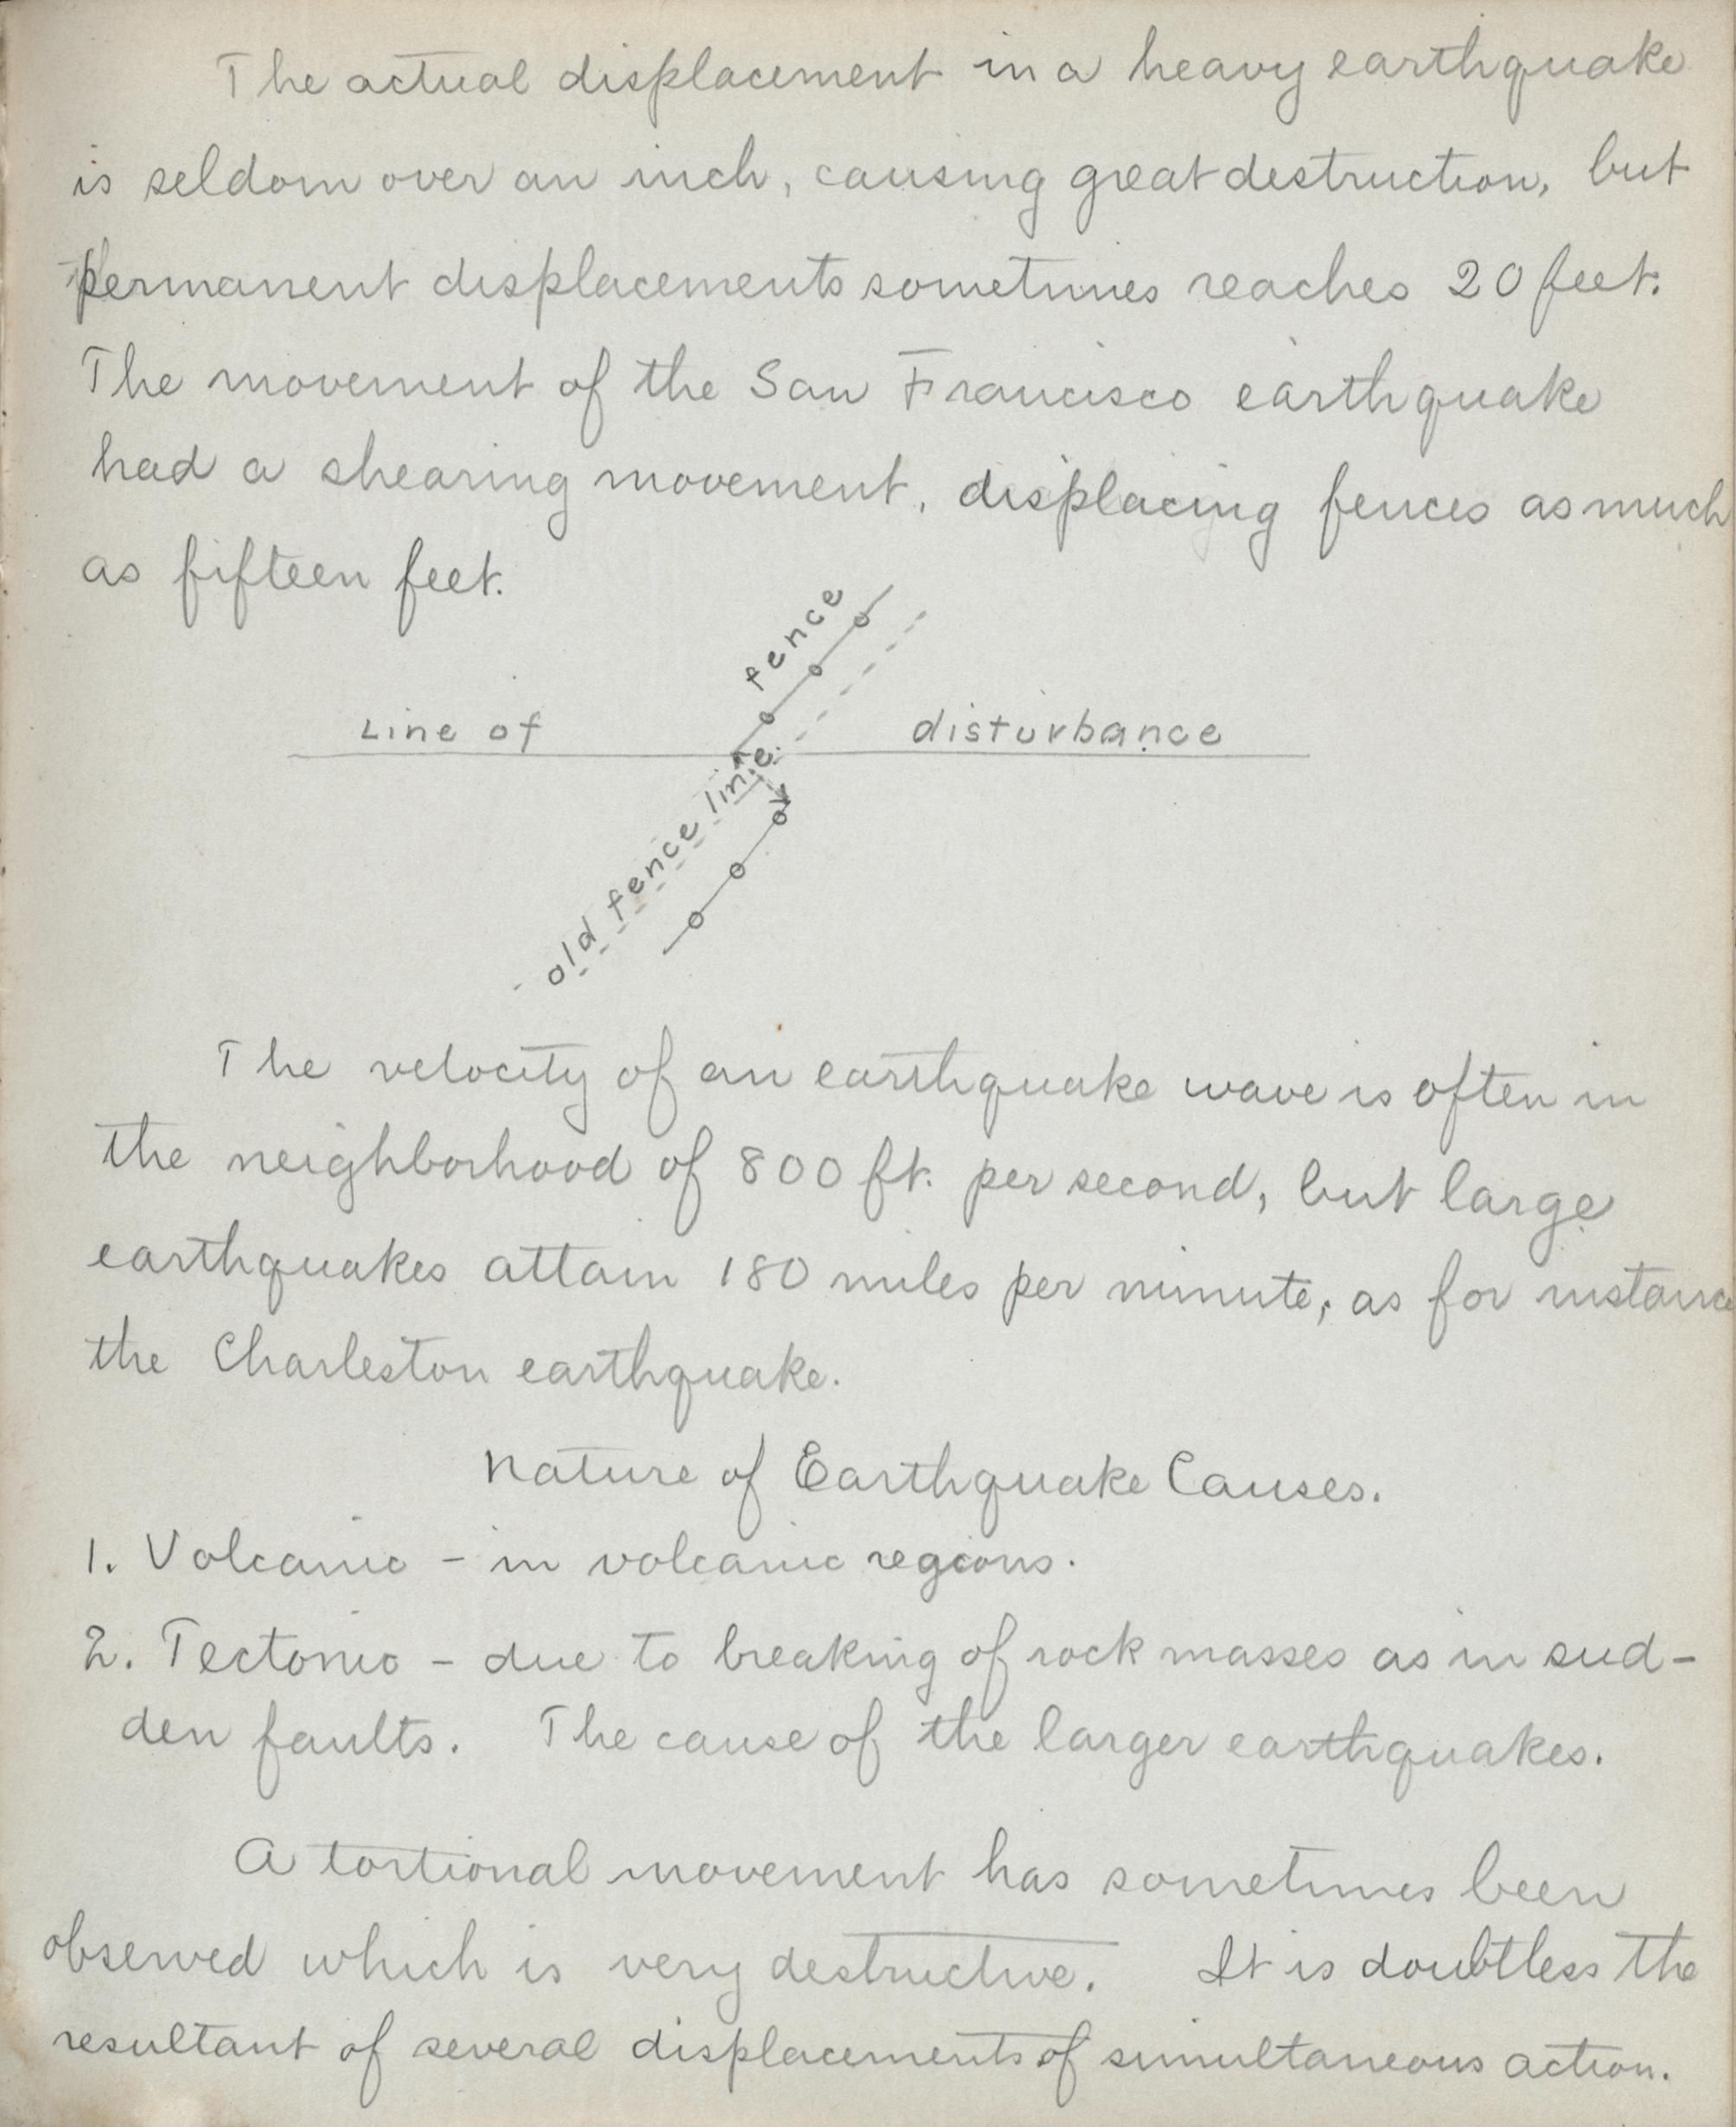 The actual displacement in a heavy earthquake
is seldom over an inch, causing great destruction, but
permanent displacements sometimes reaches 20 feet.
The movement of the San Francisco earthquake
had a shearing movement, displacing fences as much
as fifteen feet.
fence
Line of disturbance
old fence line
The velocity of an earthquake wave is often in
the neighborhood of 800 ft. per second, but large
earthquakes attain 180 miles per minute, as for instance
the Charleston earthquake.
Nature of Earthquake Causes.
1. Volcanic - in volcanic regions.
2. Tectonic - due to breaking of rock masses as in sud-
den faults. The cause of the larger earthquakes.
A tortional movement has sometimes been
observed which is very destructive. It is doubtless the
resultant of several displacements of simultaneous action.